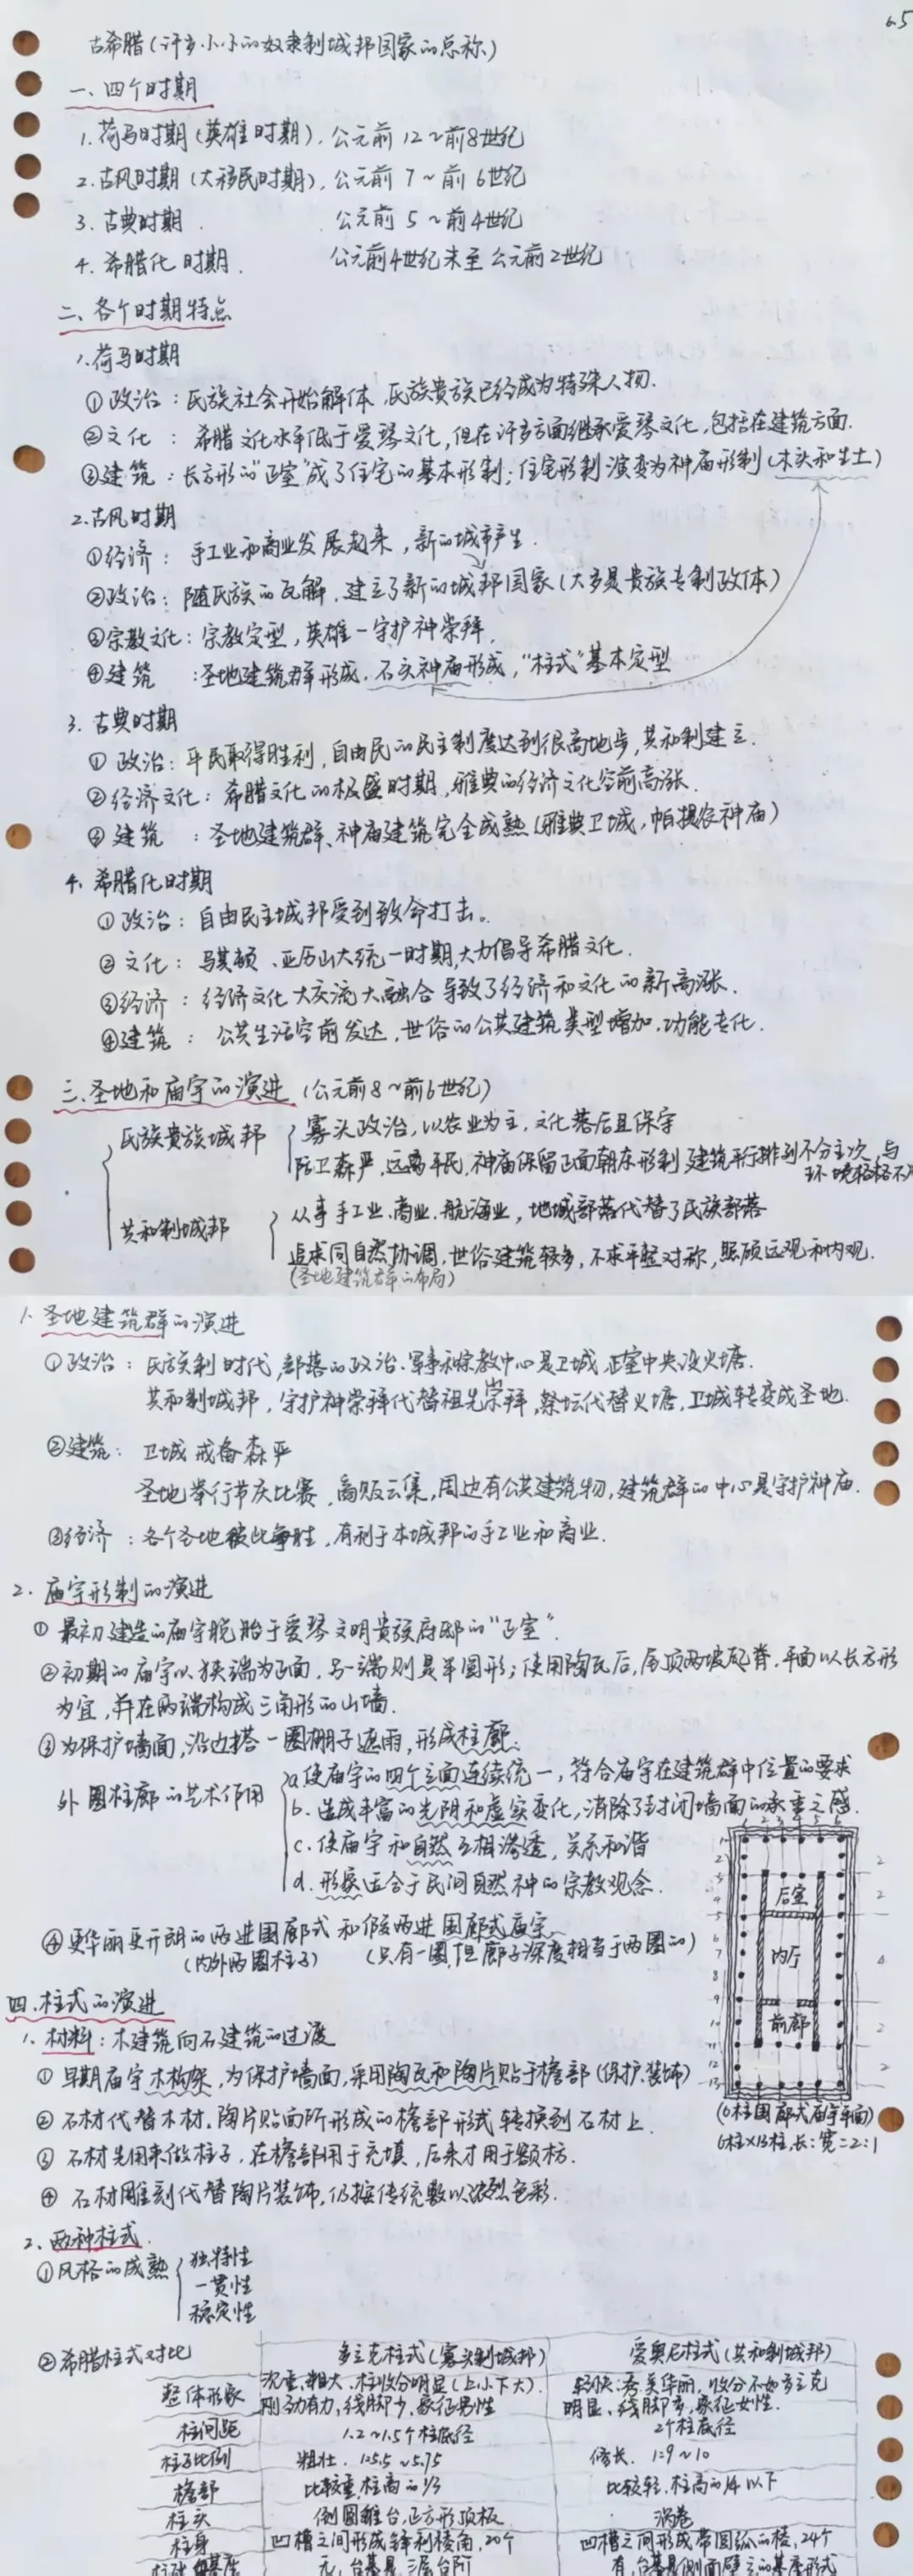 6.5
古希腊(许多小小的奴隶制城邦国家的总称)
一、四个时期
1.荷马时期(英雄时期). 公元前12~前8世纪
2.古风时期(大移民时期). 公元前7~前6世纪
3.古典时期. 公元前5~前4世纪
4.希腊化时期. 公元前4世纪末至公元前2世纪
二、各个时期特点
1.荷马时期
①政治:民族社会开始解体,民族贵族已经成为特殊人物.
②文化:希腊文化水平低于爱琴文化,但在许多方面继承爱琴文化,包括在建筑方面.
③建筑:长方形的"正室"成了住宅的基本形制;住宅形制演变为神庙形制(木头和生土)
2.古风时期
①经济:手工业和商业发展起来,新的城市产生.
②政治:随民族的瓦解,建立了新的城邦国家(大多是贵族专制政体)
③宗教文化:宗教定型,英雄-守护神崇拜.
④建筑:圣地建筑群形成.石头神庙形成,"柱式"基本定型
3.古典时期
①政治:平民取得胜利,自由民的民主制度达到很高地步,共和制建立.
②经济文化:希腊文化的极盛时期,雅典的经济文化空前高涨.
③建筑:圣地建筑群、神庙建筑完全成熟(雅典卫城,帕提农神庙)
4.希腊化时期
①政治:自由民主城邦受到致命打击。
②文化:马其顿、亚历山大统一时期,大力倡导希腊文化.
③经济:经济文化大交流大融合导致了经济和文化的新高涨.
④建筑:公共生活空前发达,世俗的公共建筑类型增加.功能专化.
三.圣地和庙宇的演进(公元前8~前6世纪)
民族贵族城邦
寡头政治,以农业为主,文化落后且保守
防卫森严,远离平民,神庙保留正面朝东形制 建筑平行排列不分主次,与
环境格格不入
共和制城邦
从事手工业.商业.航海业,地域部落代替了民族部落
追求同自然协调.世俗建筑较多,不求平整对称,照顾远观和内观.
(圣地建筑群的布局)
1.圣地建筑群的演进
①政治:民族制时代,部落的政治.军事和宗教中心是卫城 正室中央设火塘.
共和制城邦,守护神崇拜代替祖先崇拜,祭坛代替火塘,卫城转变成圣地.
②建筑:卫城戒备森严
圣地举行节庆比赛,商贩云集,周边有公共建筑物,建筑群的中心是守护神庙.
③经济:各个圣地彼此争胜,有利于本城邦的手工业和商业.
2.庙宇形制的演进
①最初建造的庙宇脱胎于爱琴文明贵族府邸的"正室".
②初期的庙宇以狭端为正面,另一端则是半圆形;使用陶瓦后,屋顶两坡起脊.平面以长方形
为宜,并在两端构成三角形的山墙.
③为保护墙面,沿边搭一圈棚子遮雨,形成柱廊.
外圈柱廊的艺术作用
a.使庙宇的四个立面连续统一,符合庙宇在建筑群中位置的要求
b.造成丰富的光阴和虚实变化,消除了封闭墙面的承重之感.
c.使庙宇和自然互相渗透,关系和谐
d.形象适合于民间自然神的宗教观念.
④更华丽更开朗的两进围廊式和假两进围廊式庙宇
(内外两圈柱子)(只有一圈,但廊子深度相当于两圈的)
后室
内厅
前廊
(6柱围廊式庙宇平面)
6柱×13柱,长:宽=2:1
四.柱式的演进
1.材料:木建筑向石建筑的过渡
①早期庙宇木构架,为保护墙面,采用陶瓦和陶片贴于檐部(保护.装饰)
②石材代替木材.陶片贴面所形成的檐部形式转换到石材上.
③石材先用来做柱子,在檐部用于充填,后来才用于额枋.
④石材雕刻代替陶片装饰,仍按传统敷以浓烈色彩.
2.两种柱式.
①风格的成熟
独特性
一贯性
稳定性
②希腊柱式对比 多立克柱式(寡头制城邦) 爱奥尼柱式(共和制城邦)
整体形象 沉重、粗大、柱收分明显(上小下大). 轻快.秀美华丽,收分不如多立克
刚劲有力,线脚少,象征男性 明显、线脚多,象征女性.
柱间距 1.2~1.5个柱底径 2个柱底径
柱子比例 粗壮. 1:5.5~5.75 修长. 1:9~10
檐部 比较重,柱高的1/3 比较轻.柱高的1/4以下
柱头 倒圆锥台,正方形顶板 涡卷
柱身 凹槽之间形成锋利棱角,20个 凹槽之间形成带圆弧的棱,24个
无,台基是三层台阶